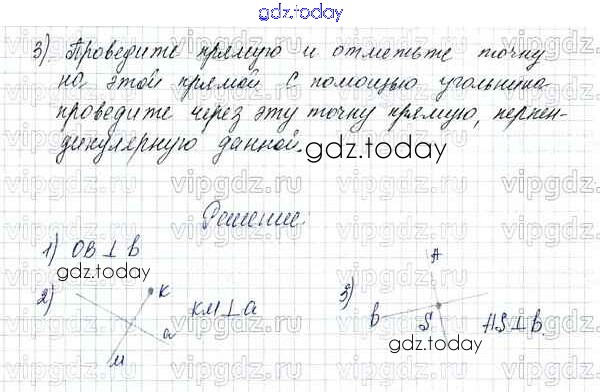 gdz.today
3) Проведите прямую и отметьте точку
на этой прямой. С помощью угольника
проведите через эту точку прямую, перпен-
дикулярную данной.
gdz.today
Решение:
1) OB ⊥ b
gdz.today
2) K a M KM ⊥ a
3) A b S AS ⊥ b.
gdz.today
vipgdz.ru